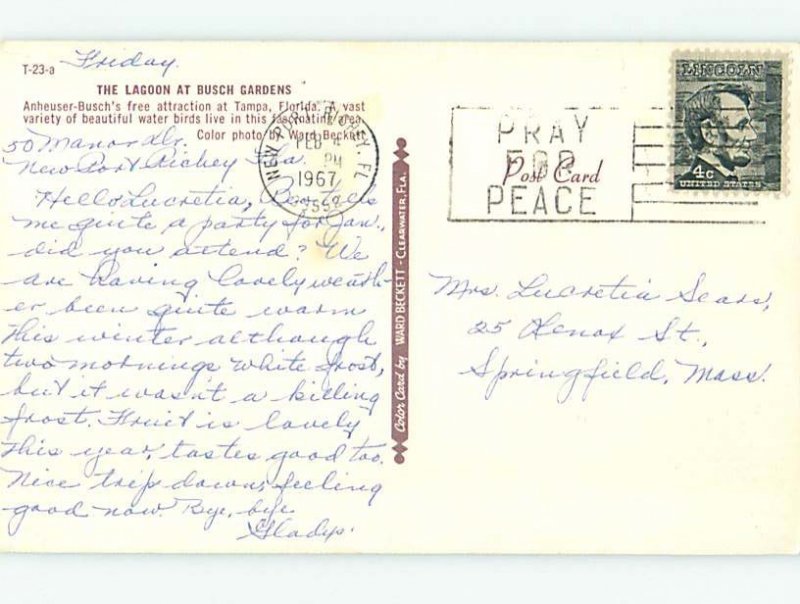 Friday.
T-23-a
THE LAGOON AT BUSCH GARDENS
Anheuser-Busch's free attraction at Tampa, Florida. A vast
variety of beautiful water birds live in this fascinating area.
Color photo by Ward Beckett
50 Manor Dr.
New Port Richey Fla.
Hello Lucretia, tells
me quite a party for Jan.,
did you attend? We
are having lovely weath-
er been quite warm
this winter although
two mornings white frost,
but it wasn't a killing
frost. Fruit is lovely
this year, tastes good too.
Nice trip down, feeling
good now. Bye, bye
Gladys.
NEW PORT RICHEY, FL
FEB 4
PM
1967
Color Card by WARD BECKETT - CLEARWATER, FLA.
PRAY
FOR
PEACE
Post Card
LINCOLN
4c
UNITED STATES
Mrs. Lucretia Sears,
25 Lenox St.,
Springfield, Mass.